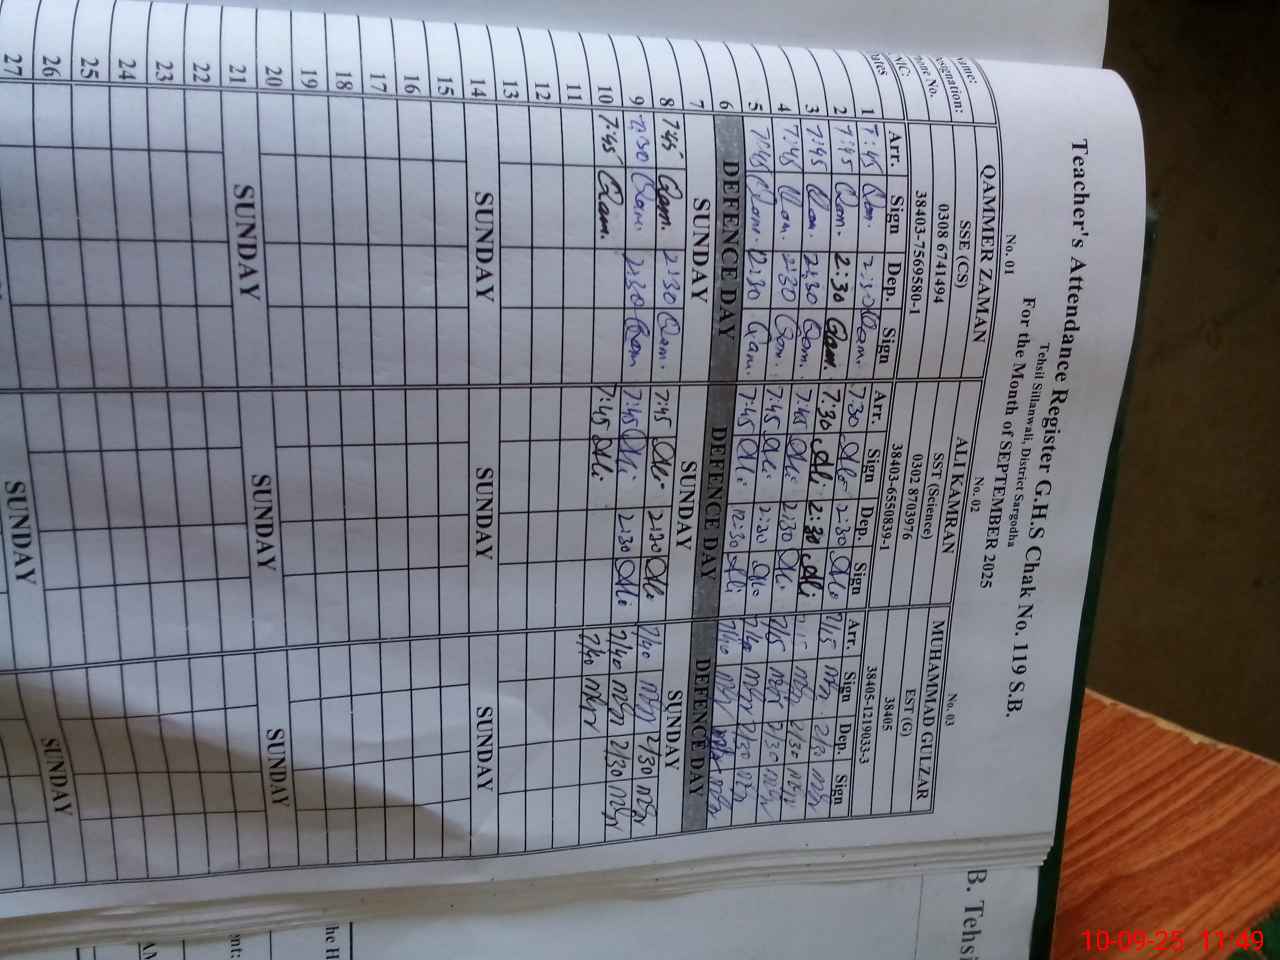 Teacher's Attendance Register G.H.S Chak No. 119 S.B.
Tehsil Sillanwali, District Sargodha
For the Month of SEPTEMBER 2025
No. 01 No. 02 No. 03
QAMMER ZAMAN ALI KAMRAN MUHAMMAD GULZAR
SSE (CS) SST (Science) EST (G)
0308 6741494 0302 8702976 38405
38403-7569580-1 38403-6550839-1 38405-1219033-3
Arr. Sign Dep. Sign Arr. Sign Dep. Sign Arr. Sign Dep. Sign
1 7:45 Qam. 2:30 Qam. 7:30 Ali 2:30 Ali 7/15
2 7:45 Qam. 2:30 Qam. 7:30 Ali 2:30 Ali
3 7:45 Qam. 2:30 Qam. 7:45 Ali 2:30 Ali 7/15 2/30
4 7:45 Qam. 2:30 Qam. 7:45 Ali 2:30 Ali
5 7:45 Qam. 12:30 Qam. 7:45 Ali 12:30 Ali 7/40
6 DEFENCE DAY DEFENCE DAY DEFENCE DAY
7 SUNDAY SUNDAY SUNDAY
8 7:45 Qam. 2:30 Qam. 7:45 Ali 2:30 Ali 7/40 2/30
9 7:30 Qam. 2:30 Qam 7:45 Ali 2:30 Ali 7/40 2/30
10 7:45 Qam. 7:45 Ali 7/40
11
12
13
14 SUNDAY SUNDAY SUNDAY
15
16
17
18
19
20
21 SUNDAY SUNDAY SUNDAY
22
23
24
25
26
27
SUNDAY SUNDAY
B. Tehsi
he H
ent:
10-09-25 11:49